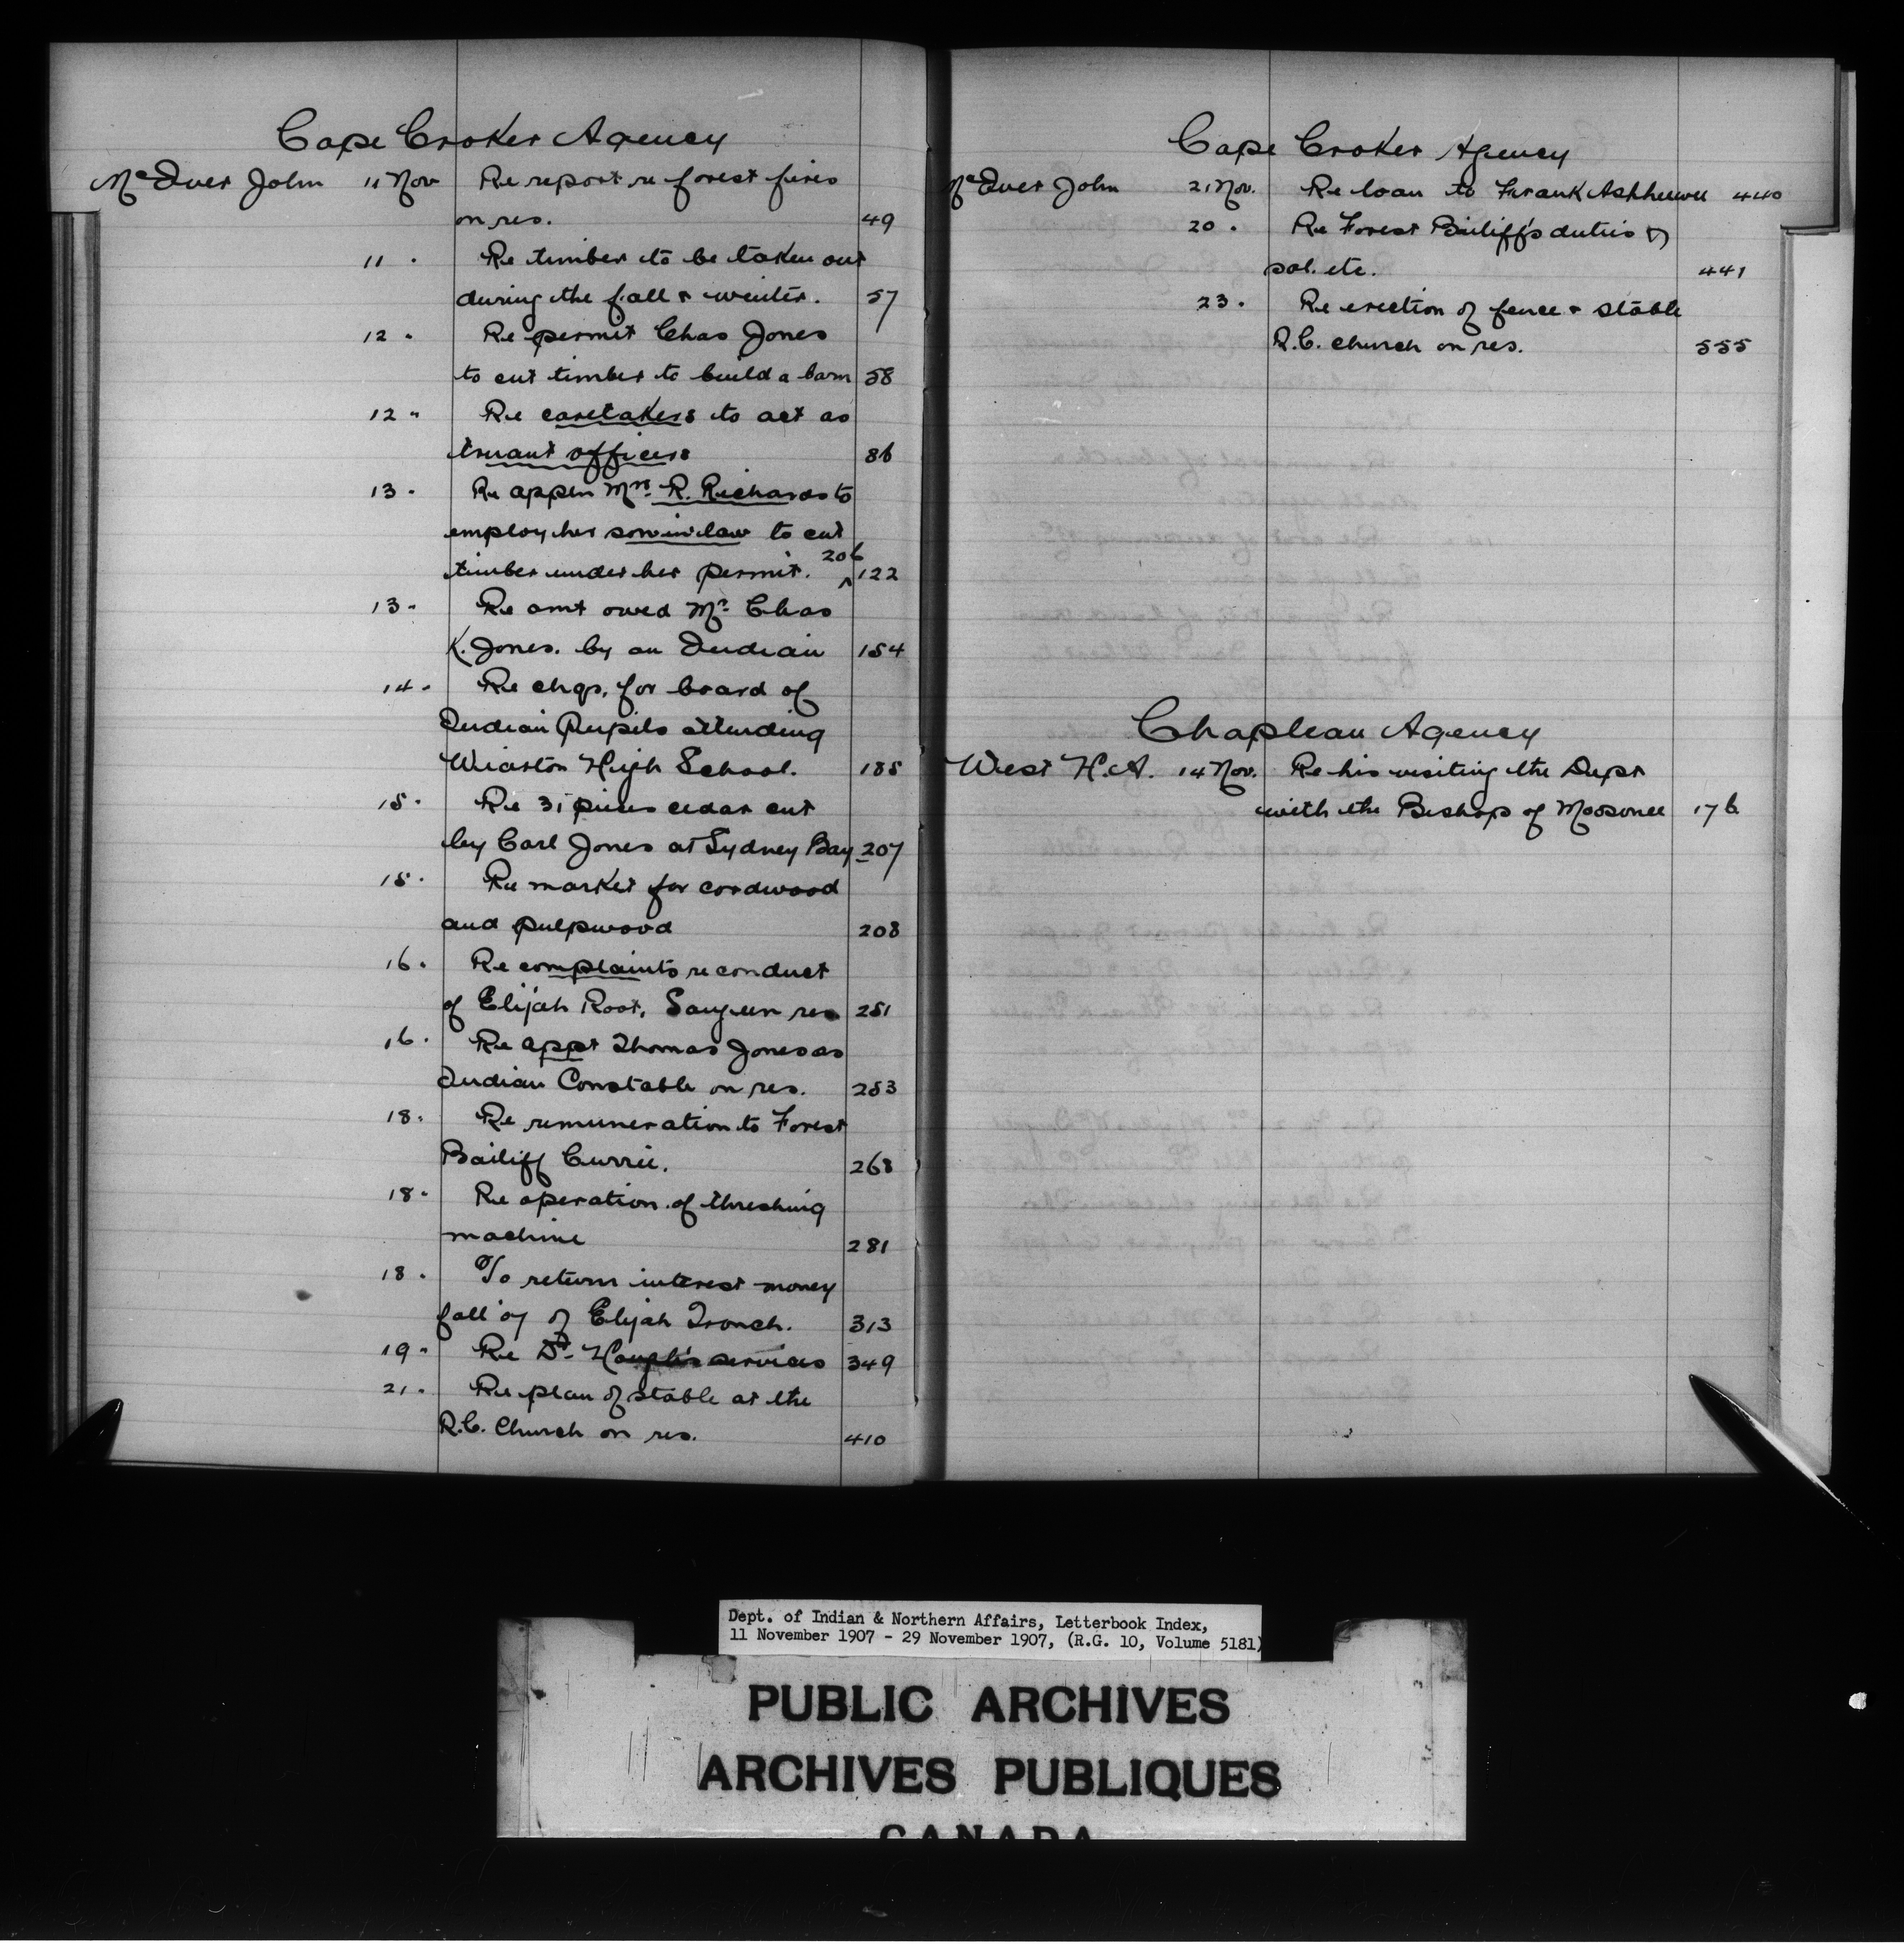 Cape Croker Agency
McIver John 11 Nov Re report re forest fires
on res. 49
11 " Re timber to be taken out
during the fall & winter. 57
12 " Re permit Chas Jones
to cut timber to build a barn 58
12 " Re caretakers to act as
truant officers 86
13 " Re appln Mrs. R. Richards to
employ her son in law to cut
timber under her permit. 206 122
13 " Re amt owed Mr. Chas
K. Jones. by an Indian 154
14 " Re chgs. for board of
Indian Pupils attending
Wiarton High School. 185
15 " Re 31 pieces cedar cut
by Carl Jones at Sydney Bay 207
15 " Re market for cordwood
and pulpwood 208
16 " Re complaints re conduct
of Elijah Root, Saugeen res 251
16 " Re appt Thomas Jones as
Indian Constable on res. 253
18 " Re remuneration to Forest
Bailiff Currie. 268
18 " Re operation of threshing
machine 281
18 " To return interest money
fall '07 of Elijah Tronch. 313
19 " Re Dr. services 349
21 " Re plan of stable at the
R.C. Church on res. 410
Cape Croker Agency
McIver John 21 Nov. Re loan to Frank 440
20 " Re Forest Bailiff's duties &
sal. etc. 441
23 " Re erection of fence & stable
R.C. church on res. 555
Chapleau Agency
West H.A. 14 Nov. Re his visiting the Dept
with the Bishop of Moosonee 176
Dept. of Indian & Northern Affairs, Letterbook Index,
11 November 1907 - 29 November 1907, (R.G. 10, Volume 5181)
PUBLIC ARCHIVES
ARCHIVES PUBLIQUES
CANADA